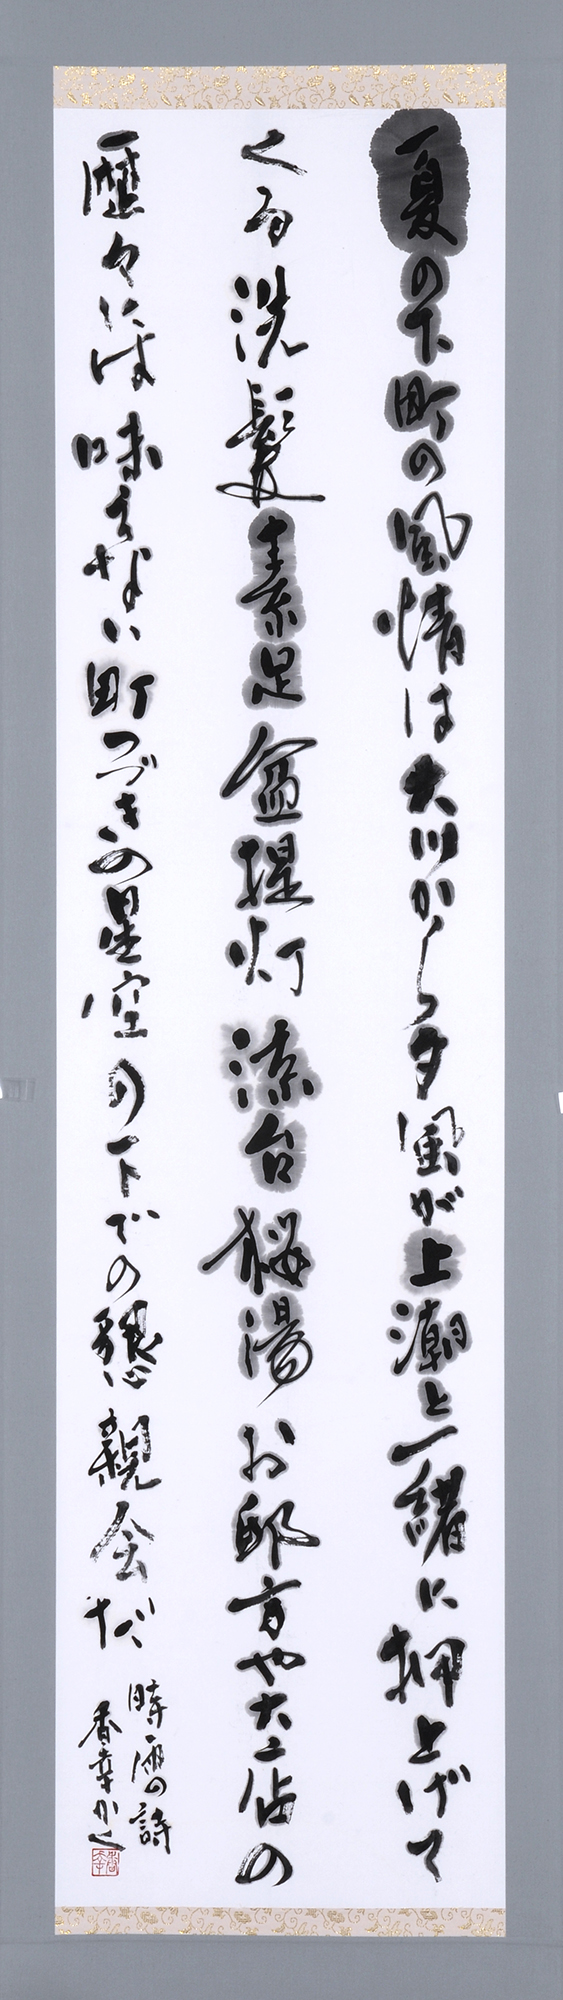 夏の下町の風情は大川から夕風が上潮と一緒に押上げて
くる洗髪素足盆提灯涼台桜湯お邸方や大店の
歴々には味えない町つづきの星空の下での懇親会だ
時雨の詩
香幸かく